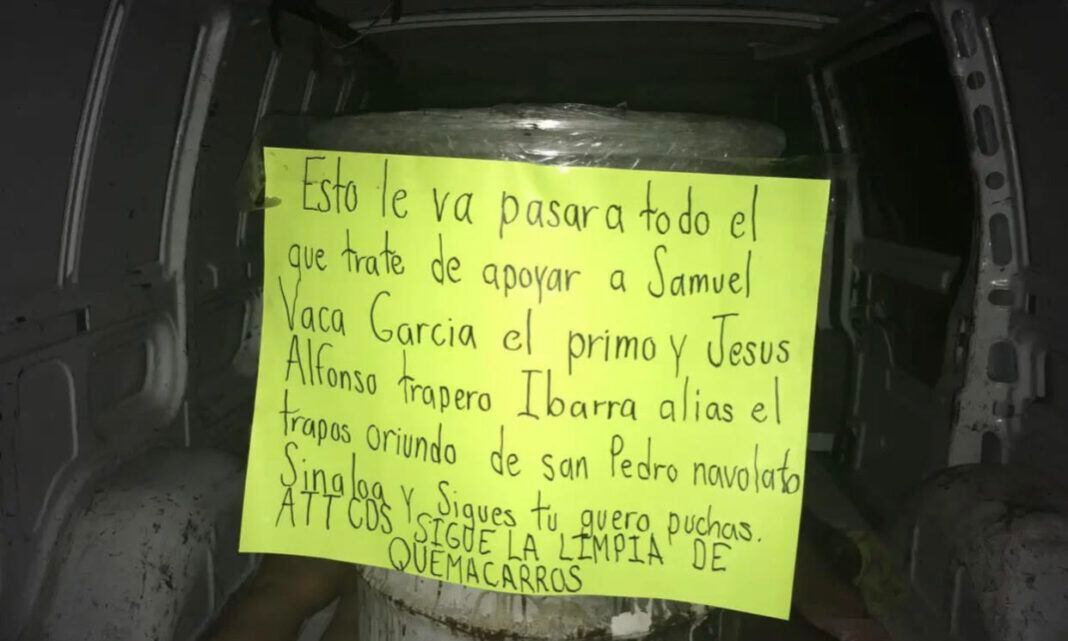 Esto le va pasar a todo el
que trate de apoyar a Samuel
Vaca Garcia el primo y Jesus
Alfonso trapero Ibarra alias el
trapos oriundo de san Pedro navolato
Sinaloa y Sigues tu guero puchas.
ATT CDS SIGUE LA LIMPIA DE
QUEMACARROS